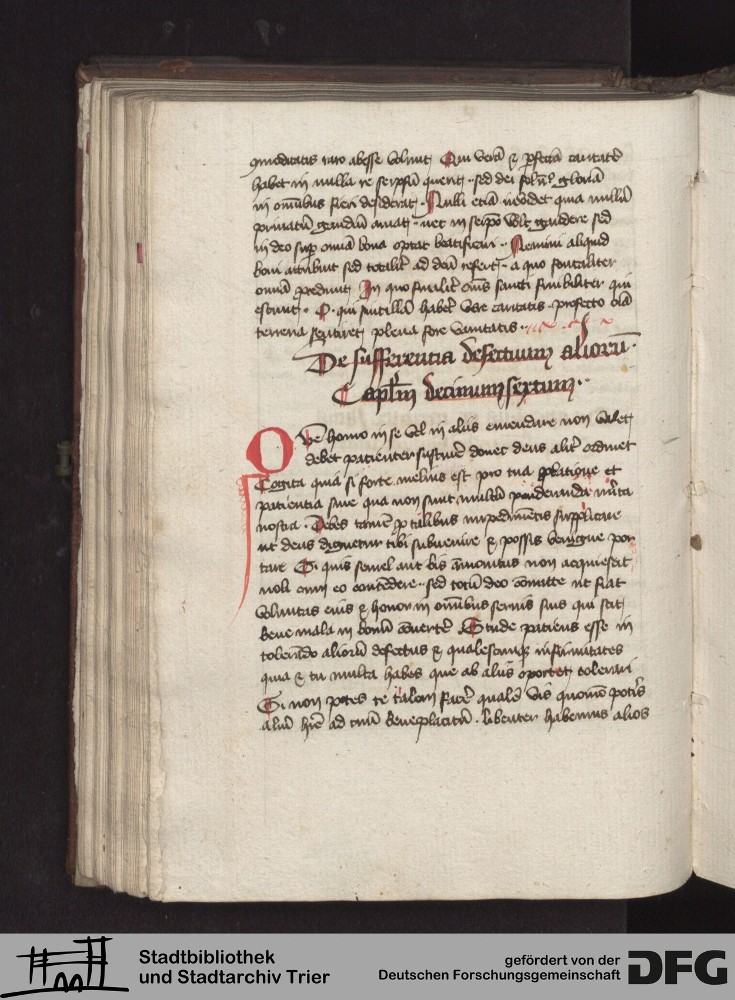 gmoditatis raro abesse volunt Qui verā & pfectā caritatē
habet in nulla re seipsū querit · sed dei solūm gloriā
in omībus fieri desiderat · Nulli etiā īuidet quia nullū
priuatū gaudiū amat · nec in seipō vult gaudere sed
in deo sup omīa bona optat beatificari · Nemini aliquid
boni attribuit sed totalit ad deū refert · a quo fontaliter
omīa pcedunt In quo finalit oms sancti fruibiliter qui
escunt · O · qui scintillā haberet vere caritatis · profecto oīa
terrena sentiret plena fore vanitatis ·
De sufferentia defectuum aliorū ·
Caplm decimumsextum ·
Que homo in se vel in aliis emendare non valet
debet patienter sustinē donec deus alit ordinet
Cogita quia si forte melius est pro tua pbatione et
patientia sine qua non sunt multū ponderanda mīta
nostra · Debes tamē p talibus impedimētis supplicare
ut deus dignetur tibi subuenire & possis benigne por
tare Si quis semel aut bis āmonitus non acquiescit
noli cum eo contēdere · sed totū deo cōmitte ut fiat
voluntas eius & honor in omībus seruis suis qui scit
bene mala in bonū cōuertē Stude patiens esse in
tolerādo aliorū defectus & qualescumq infirmitates
quia & tu multa habes que ab aliis oportet tolerari
Si non potes te talem facē qualē vis quomō potis
aliū hrē ad tuū beneplacitū · libenter habemus alios
Stadtbibliothek
und Stadtarchiv Trier
gefördert von der
Deutschen Forschungsgemeinschaft
DFG